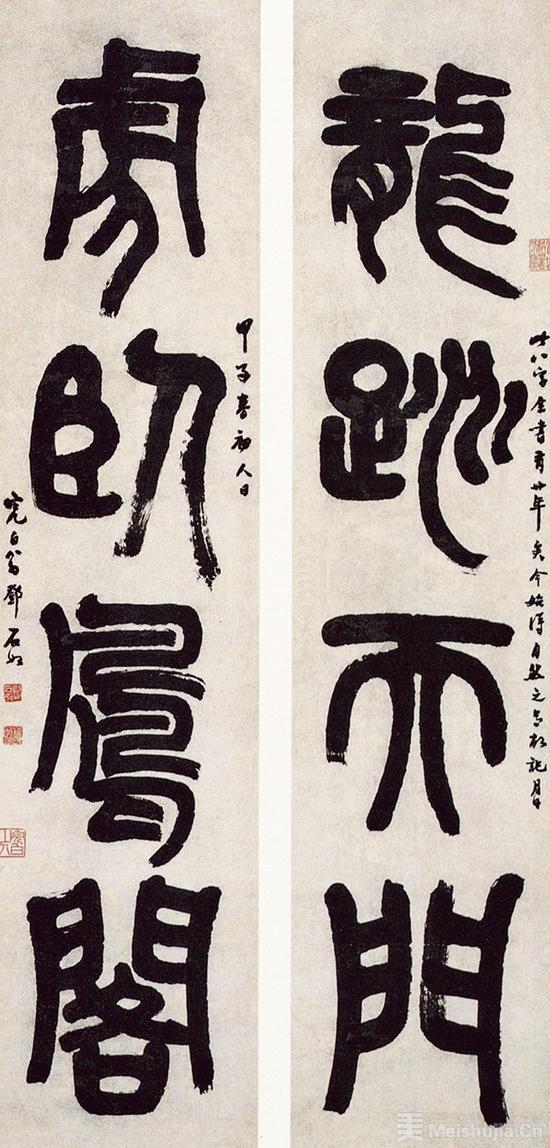 龍跳天門
此八字余書有廿年矣今始得自然之合故記月日
虎臥鳳閣
甲子春初人日
完白翁鄧石如
美 Meishujia.Cn